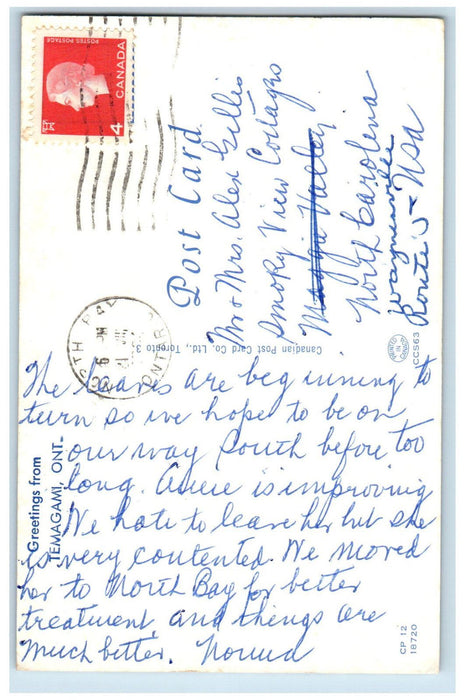 POSTES POSTAGE
CANADA
4
Post Card
Mr & Mrs. Alex Gillis
Smoky View Cottages
Maggie Valley
North Carolena
Waynesville
Route 1 - USA
NORTH BAY
PM
ONTARIO
Canadian Post Card Co., Ltd., Toronto 3
CC563
Greetings from
TEMAGAMI, ONT.
The leaves are beginning to
turn so we hope to be on
our way South before too
long. is improving
We hate to leave her but she
is very contented. We moved
her to North Bay for better
treatment and things are
much better. Norma
CP 12
18720